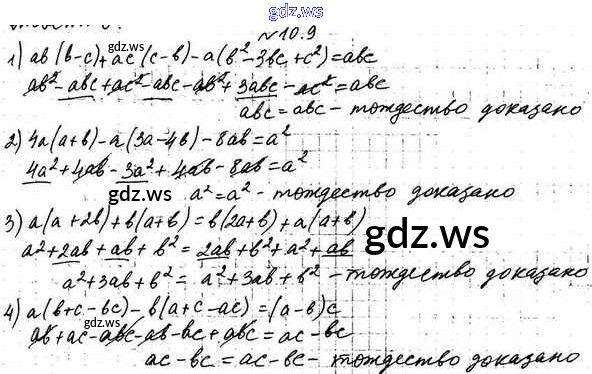 gdz.ws
№10.9
gdz.ws
1) ab(b-c)+ac(c-b)-a(b²-3bc+c²)=abc
ab²-abc+ac²-abc-ab²+3abc-ac²=abc
abc=abc-тождество доказано
2) 4a(a+b)-a(3a-4b)-8ab=a²
4a²+4ab-3a²+4ab-8ab=a²
gdz.ws
a²=a²-тождество доказано
3) a(a+2b)+b(a+b)=b(2a+b)+a(a+b)
a²+2ab+ab+b²=2ab+b²+a²+ab
gdz.ws
a²+3ab+b²=a²+3ab+b²-тождество доказано
4) a(b+c-bc)-b(a+c-ac)=(a-b)c
gdz.ws
ab+ac-abc-ab-bc+abc=ac-bc
ac-bc=ac-bc-тождество доказано